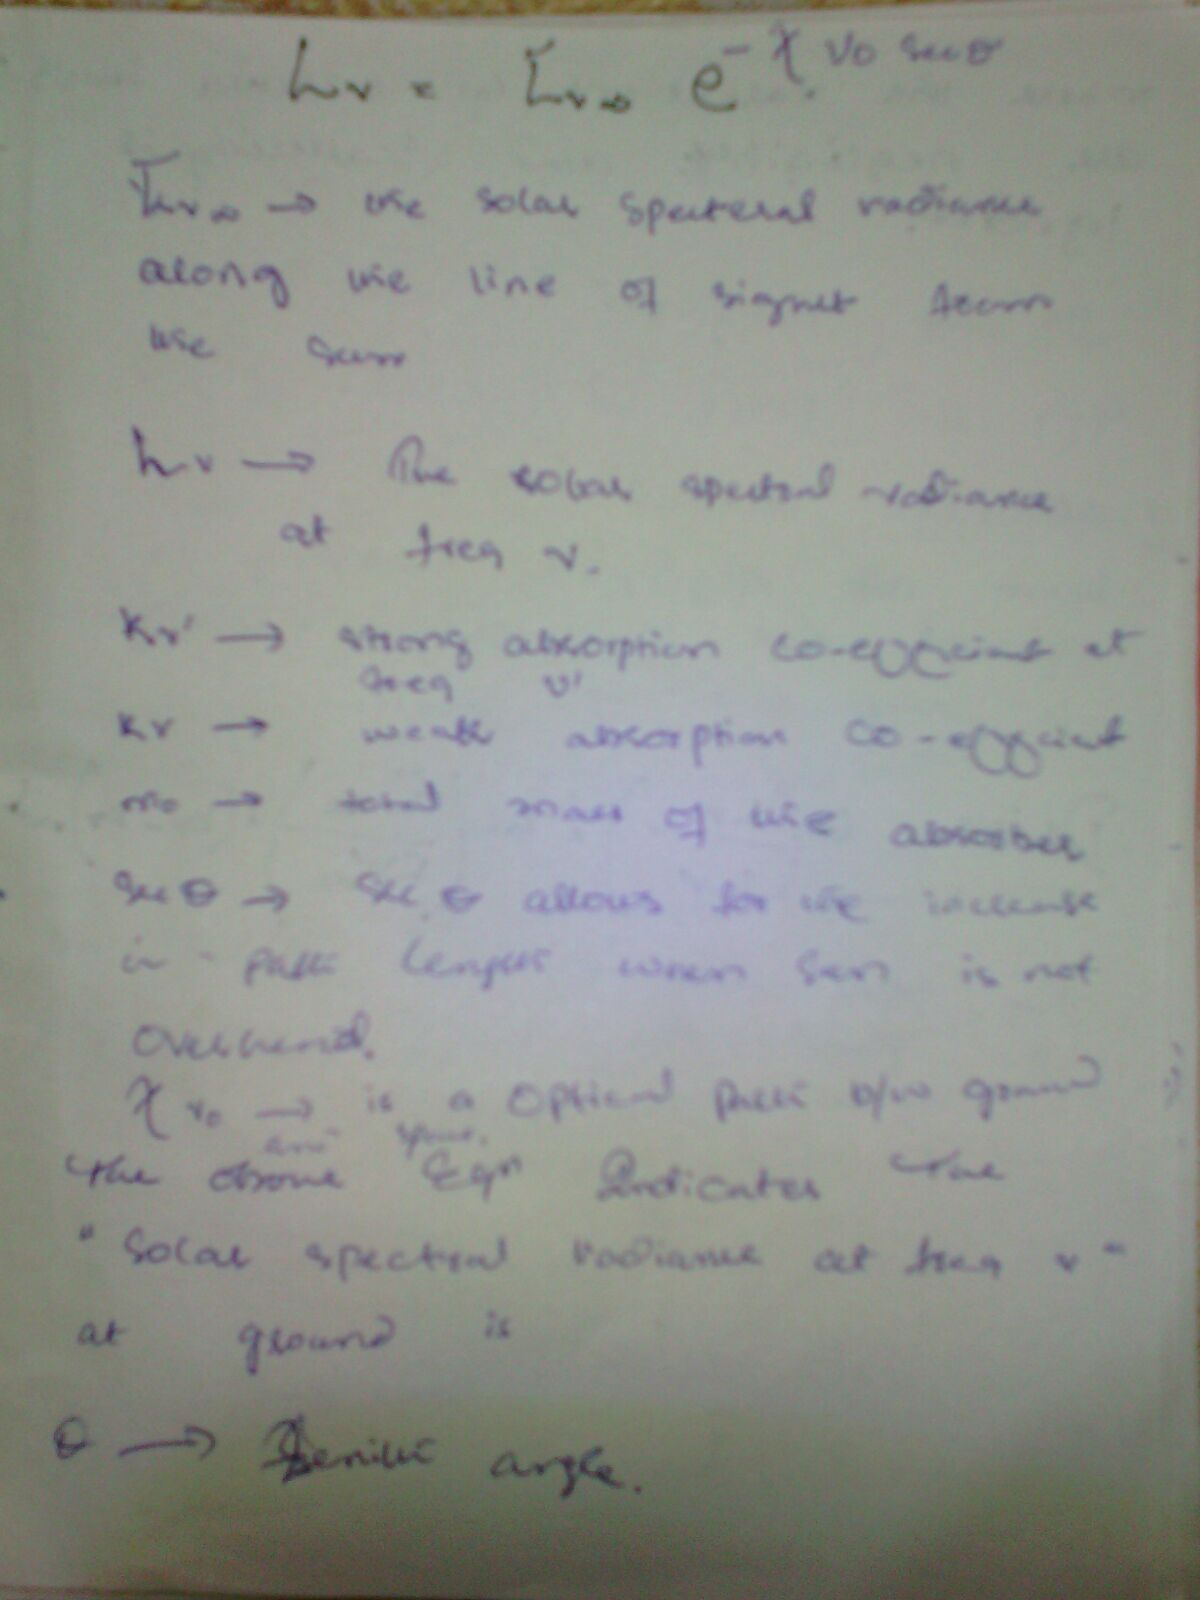 Lν = L̅ν∞ e^-χν0 secθ
L̅ν∞ → the solar specteral radiance
along the line of signet from
the sun
Lν → The solar spectral radiance
at freq ν.
Kν' → strong absorption co-efficient at
freq ν'
Kν → weak absorption co-efficient
m0 → total mass of the absorber
sec θ → sec θ allows for the increase
in path length when sun is not
overhead.
χν0 → is a optical path b/w ground
and space.
The above Eqn Indicates the
" Solar spectral radiance at freq ν "
at ground is
θ → Zenith angle.